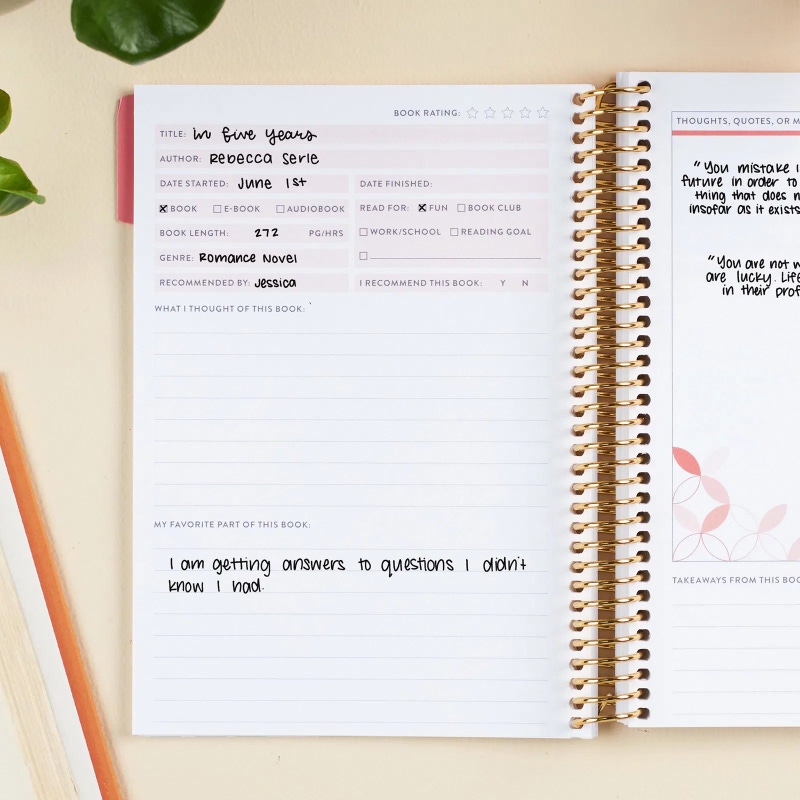 BOOK RATING:
TITLE: in five years
AUTHOR: Rebecca Serle
DATE STARTED: June 1st
DATE FINISHED:
BOOK E-BOOK AUDIOBOOK
READ FOR: FUN BOOK CLUB
BOOK LENGTH: 272 PG/HRS
WORK/SCHOOL READING GOAL
GENRE: Romance Novel
RECOMMENDED BY: Jessica
I RECOMMEND THIS BOOK: Y N
WHAT I THOUGHT OF THIS BOOK:
MY FAVORITE PART OF THIS BOOK:
I am getting answers to questions I didn't
know I had.
THOUGHTS, QUOTES, OR
"You mistake
future in order to
thing that does
insofar as it exists
"You are not
are lucky. Life
in their
TAKEAWAYS FROM THIS